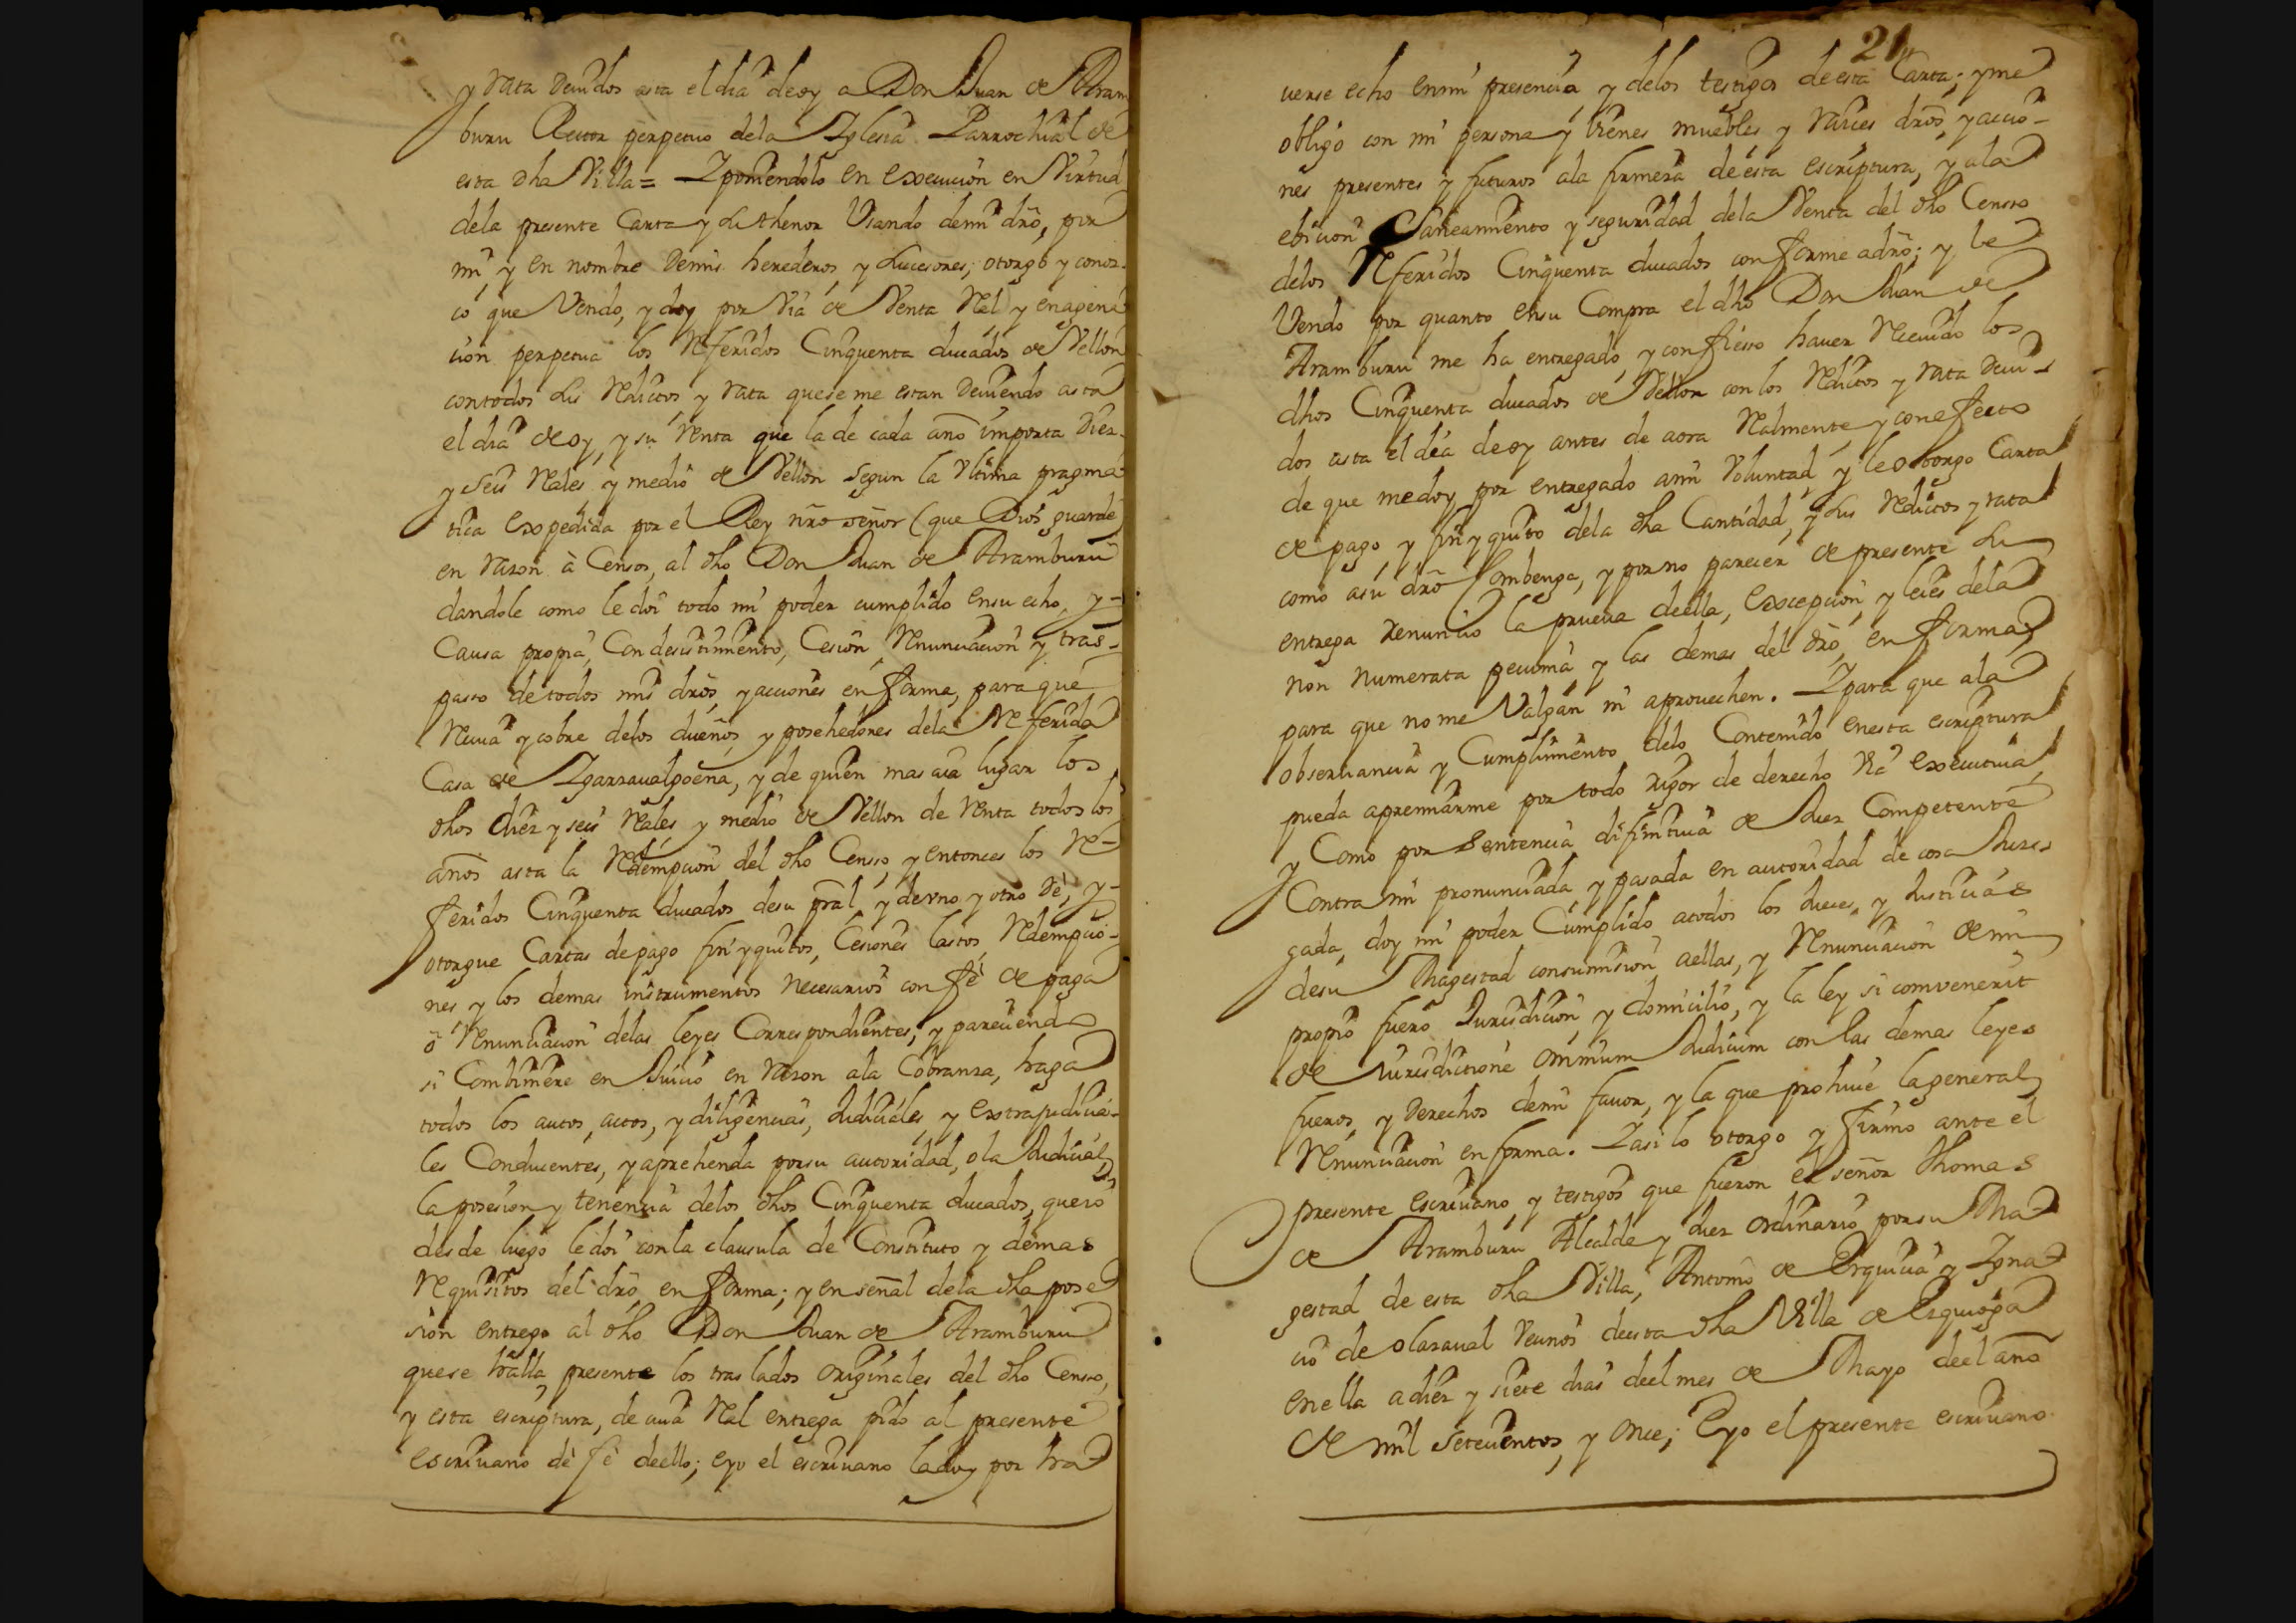 y rata deuidos asta el dia de oy a Don Juan de Aram
buru Rector perpetuo dela Iglesia Parrochial de
esta dha Villa = Y poniendolo en execucion en Virtud
dela presente Carta y su thenor Usando demi dro, por
mi, y en nombre demis herederos, y subcesores; otorgo y conoz-
co que Vendo, y doy por Via de Venta Rel y enagena
cion perpetua los Referidos Cinquenta ducados de Vellon
contodos sus Reditos y rata quese me estan deuiendo asta
el dia de oy, y su renta que la de cada año importa Diez-
y seis Reales y medio de Vellon segun la Vltima pragma
tica expedida por el Rey nro señor (que Dios guarde)
en razon à Censos, al dho Don Juan de Aramburu
dandole como le doi todo mi poder cumplido ensu echo, y-
Causa propia, Con desistimiento, Cesion, Renunciacion y tras-
passo de todos mis dros, y acciones en forma, para que
Reciua y cobre delos dueños, y posehedores dela Referida
Casa de Igarraualgoena, y de quien mas aia lugar los
dhos diez y seis Reales y medio de Vellon de Renta todos los
años asta la Redempcion del dho Censso, y entonces los Re-
feridos Cinquenta ducados desu pral, y de vno y otro dè, y-
otorgue Cartas de pago fin y quitos, Cesiones lastos, Redempcio-
nes y los demas instrumentos necesarios con fè de paga
ò Renunciacion delas leyes Correspondientes, y pareciendo
si Combiniere en Juicio en razon ala Cobranza, haga
todos los autos, actos, y diligencias, Judiciales, y extrajudicia-
les Conducentes, y aprehenda por su autoridad, o la Judicial,
la posesion y tenenzia delos dhos Cinquenta ducados, que io
desde luego le doi con la clausula de Constituto y demas
Requisitos del dro, en forma; y en señal dela dha pose
sion entrego al dho Don Juan de Aramburu
quese halla presente los traslados originales del dho Censso,
y esta escriptura, de cuia Real entrega pido al presente
escriuano dè fè deello; e yo el escriuano la doy por ha
21
uerse echo en mi presencia y delos testigos de esta Carta; y me
obligo con mi persona y bienes muebles y raices dros, y accio-
nes presentes y futuros ala firmeza de esta escriptura, y ala
ebicion Saneamiento y seguridad dela Venta del dho Censso
delos Referidos Cinquenta ducados conforme a dro; y le
Vendo por quanto ensu Compra el dho Don Juan de
Aramburu me ha entregado, y confiesso hauer Receuido los
dhos Cinquenta ducados de Vellon con los Reditos y rata deui-
dos asta el dia de oy antes de aora Realmente y con efecto
de que me doy por entregado a mi Voluntad, y le otorgo Carta
de pago, y fin y quito dela dha Cantidad, y sus Reditos y rata
como a su dro Combenga, y por no parecer de presente su
entrega renuncio la prueua deella, excepcion, y leies dela
non numerata pecunia, y las demas del dro, en forma
para que no me Valgan ni aprouechen. Y para que ala
obseruancia y Cumplimiento delo Contenido enesta escriptura
pueda apremiarme por todo rigor de derecho Via executiua,
y Como por Sentencia difinitiua de Juez Competente
Contra mi pronunciada, y pasada en autoridad de cosa Juz-
gada, doy mi poder Cumplido atodos los Jueces, y Justicias
desu Magestad consumision aellas, y Renunciacion de mi
propio fuero Jurisdicion, y domicilio, y la ley si comvenerit
de Jurisdictione omnium Judicum con las demas leyes
fueros, y derechos demi fauor, y la que prohiue la general
Renunciacion en forma. Y asi lo otorgo y firmo ante el
presente escriuano, y testigos que fueron el señor Thomas
de Aramburu Alcalde y Juez ordinario por su Ma
gestad de esta dha Villa, Antonio de Erquicia y Igna
cio de Olazaual Vecinos deesta dha Villa de Ezquioga
enella a diez y siete dias deel mes de Mayo deel año
de mil Setecientos, y once; E yo el presente escriuano